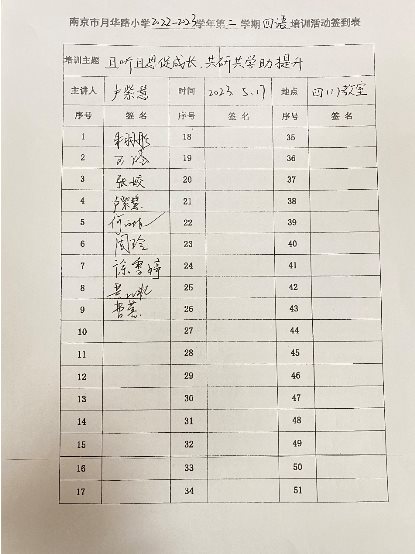 南京市月华路小学2022-2023学年第二学期四语培训活动签到表
培训主题 且听且思促成长、共研共学助提升
主讲人 卢紫慧 时间 2023.5.17 地点 四(1)教室
序号 签名 序号 签名 序号 签名
1 18 35
2 19 36
3 张姣 20 37
4 卢紫慧 21 38
5 22 39
6 周玲 23 40
7 徐雪婷 24 41
8 25 42
9 曹蕙 26 43
10 27 44
11 28 45
12 29 46
13 30 47
14 31 48
15 32 49
16 33 50
17 34 51